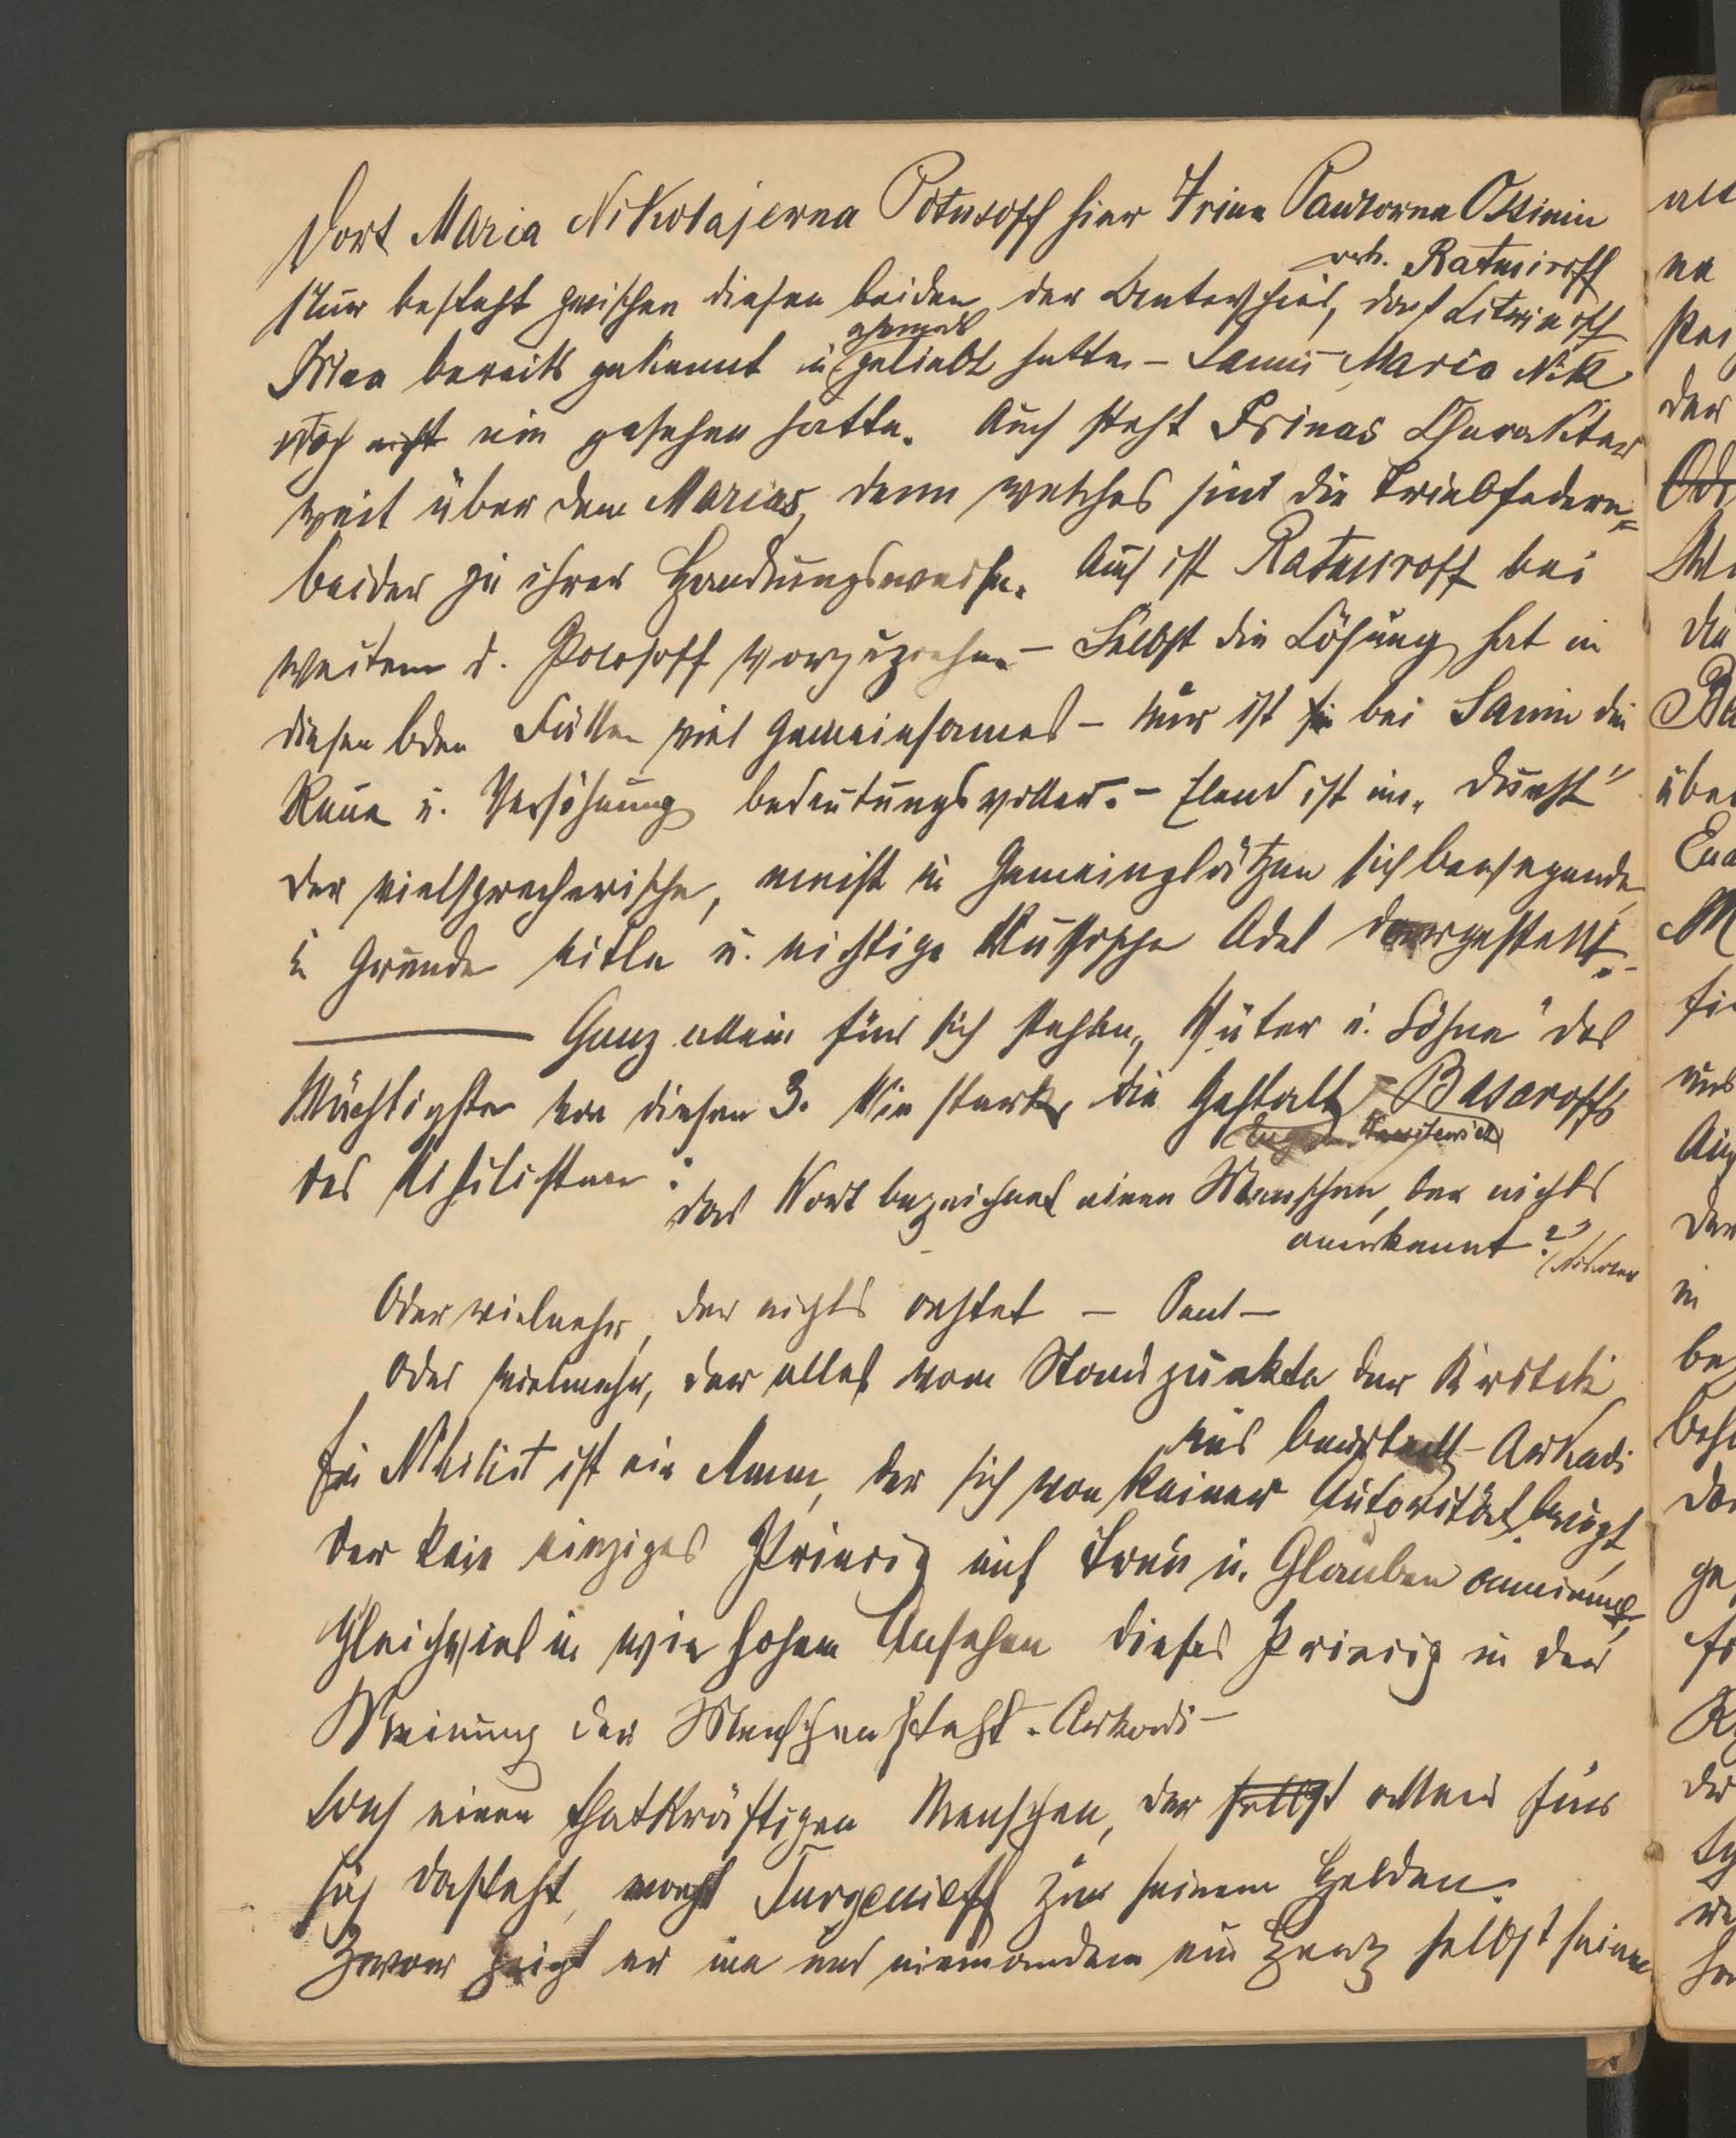 Dort Maria Nikolajewna Polusoff hier Irina Pawlowna Ossinin
verh. Ratmiroff
Nur besteht zwischen diesen beiden der Unterschied, daß Litwinoff
ehemals
Irina bereits gekannt u geliebt hatte – Sanin Maria Nik
noch nicht nie gesehen hatte. Auch steht Irinas Charakter
weit über dem Marias, denn welches sind die Triebfedern
beider zu ihrer Handlungsweise. Auch ist Ratmiroff bei
weitem d. Polosoff vorzuziehen – Selbst die Lösung hat in
diesen bden Fällen viel Gemeinsames – Nur ist sie bei Sanin die
Reue u. Versöhnung bedeutungsvoller. – Elend ist im „Dunst"
der vielsprecherische, meist in Gemeinplätzen sich bewegende,
i Grunde eitle u. nichtige Russische Adel dargestellt. –
Ganz allein für sich stehen „Väter u. Söhne" das
Mächtigste von diesen 3. Wie stark die Gestalt Basaroffs
des Nihilisten:
das Wort bezeichnet einen Menschen, der nichts
anerkennt?
Oder vielmehr, der nichts achtet – Paul –
Oder vielmehr, der alles vom Standpunkte der Kritik
aus beurteilt – Arkadi
Ein Nihilist ist ein Mann, der sich von keiner Autorität beugt,
der kein einziges Princip auf Treu u. Glauben annimmt,
Gleichviel in wie hohem Ansehen dieses Princip in der
Meinung der Menschen steht. Arkadi –
einen thatkräftigen Menschen, der selbst allein für
sich dasteht, macht Turgenieff zu seinem Helden.
Zwar zeigt er nie und niemandem ein Herz selbst seinen